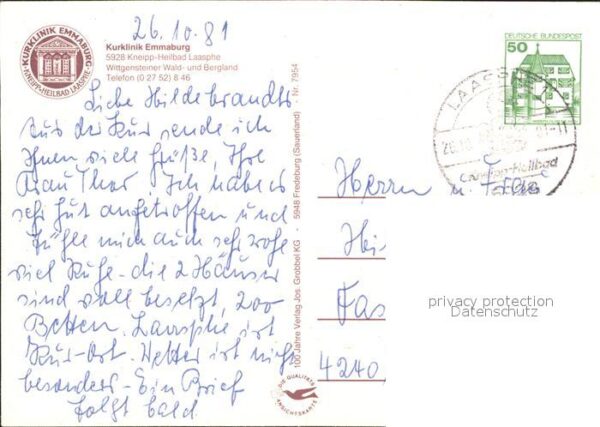 26.10.81
KURKLINIK EMMABURG
KNEIPP-HEILBAD LAASPHE
Kurklinik Emmaburg
5928 Kneipp-Heilbad Laasphe
Wittgensteiner Wald- und Bergland
Telefon (0 27 52) 8 46
Liebe Hildebrandts
Aus der Kur sende ich
Ihnen viele Grüße, Ihre
Frau Thor. Ich habe es
sehr gut angetroffen und
fühle mich auch sehr wohl
viel Ruhe - die 2 Häuser
sind voll besetzt, 200
Betten. Laasphe ist
Kur-Ort. Wetter ist nicht
besonders - Ein Brief
folgt bald
100 Jahre Verlag Jos. Grobbel KG · 5948 Fredeburg (Sauerland) · Nr. 7954
DIE QUALITÄTS
ANSICHTSKARTE
DEUTSCHE BUNDESPOST
50
LAASPHE
Kneipp-Heilbad
Herrn u. Frau
Hi
Fas
4240
privacy protection
Datenschutz